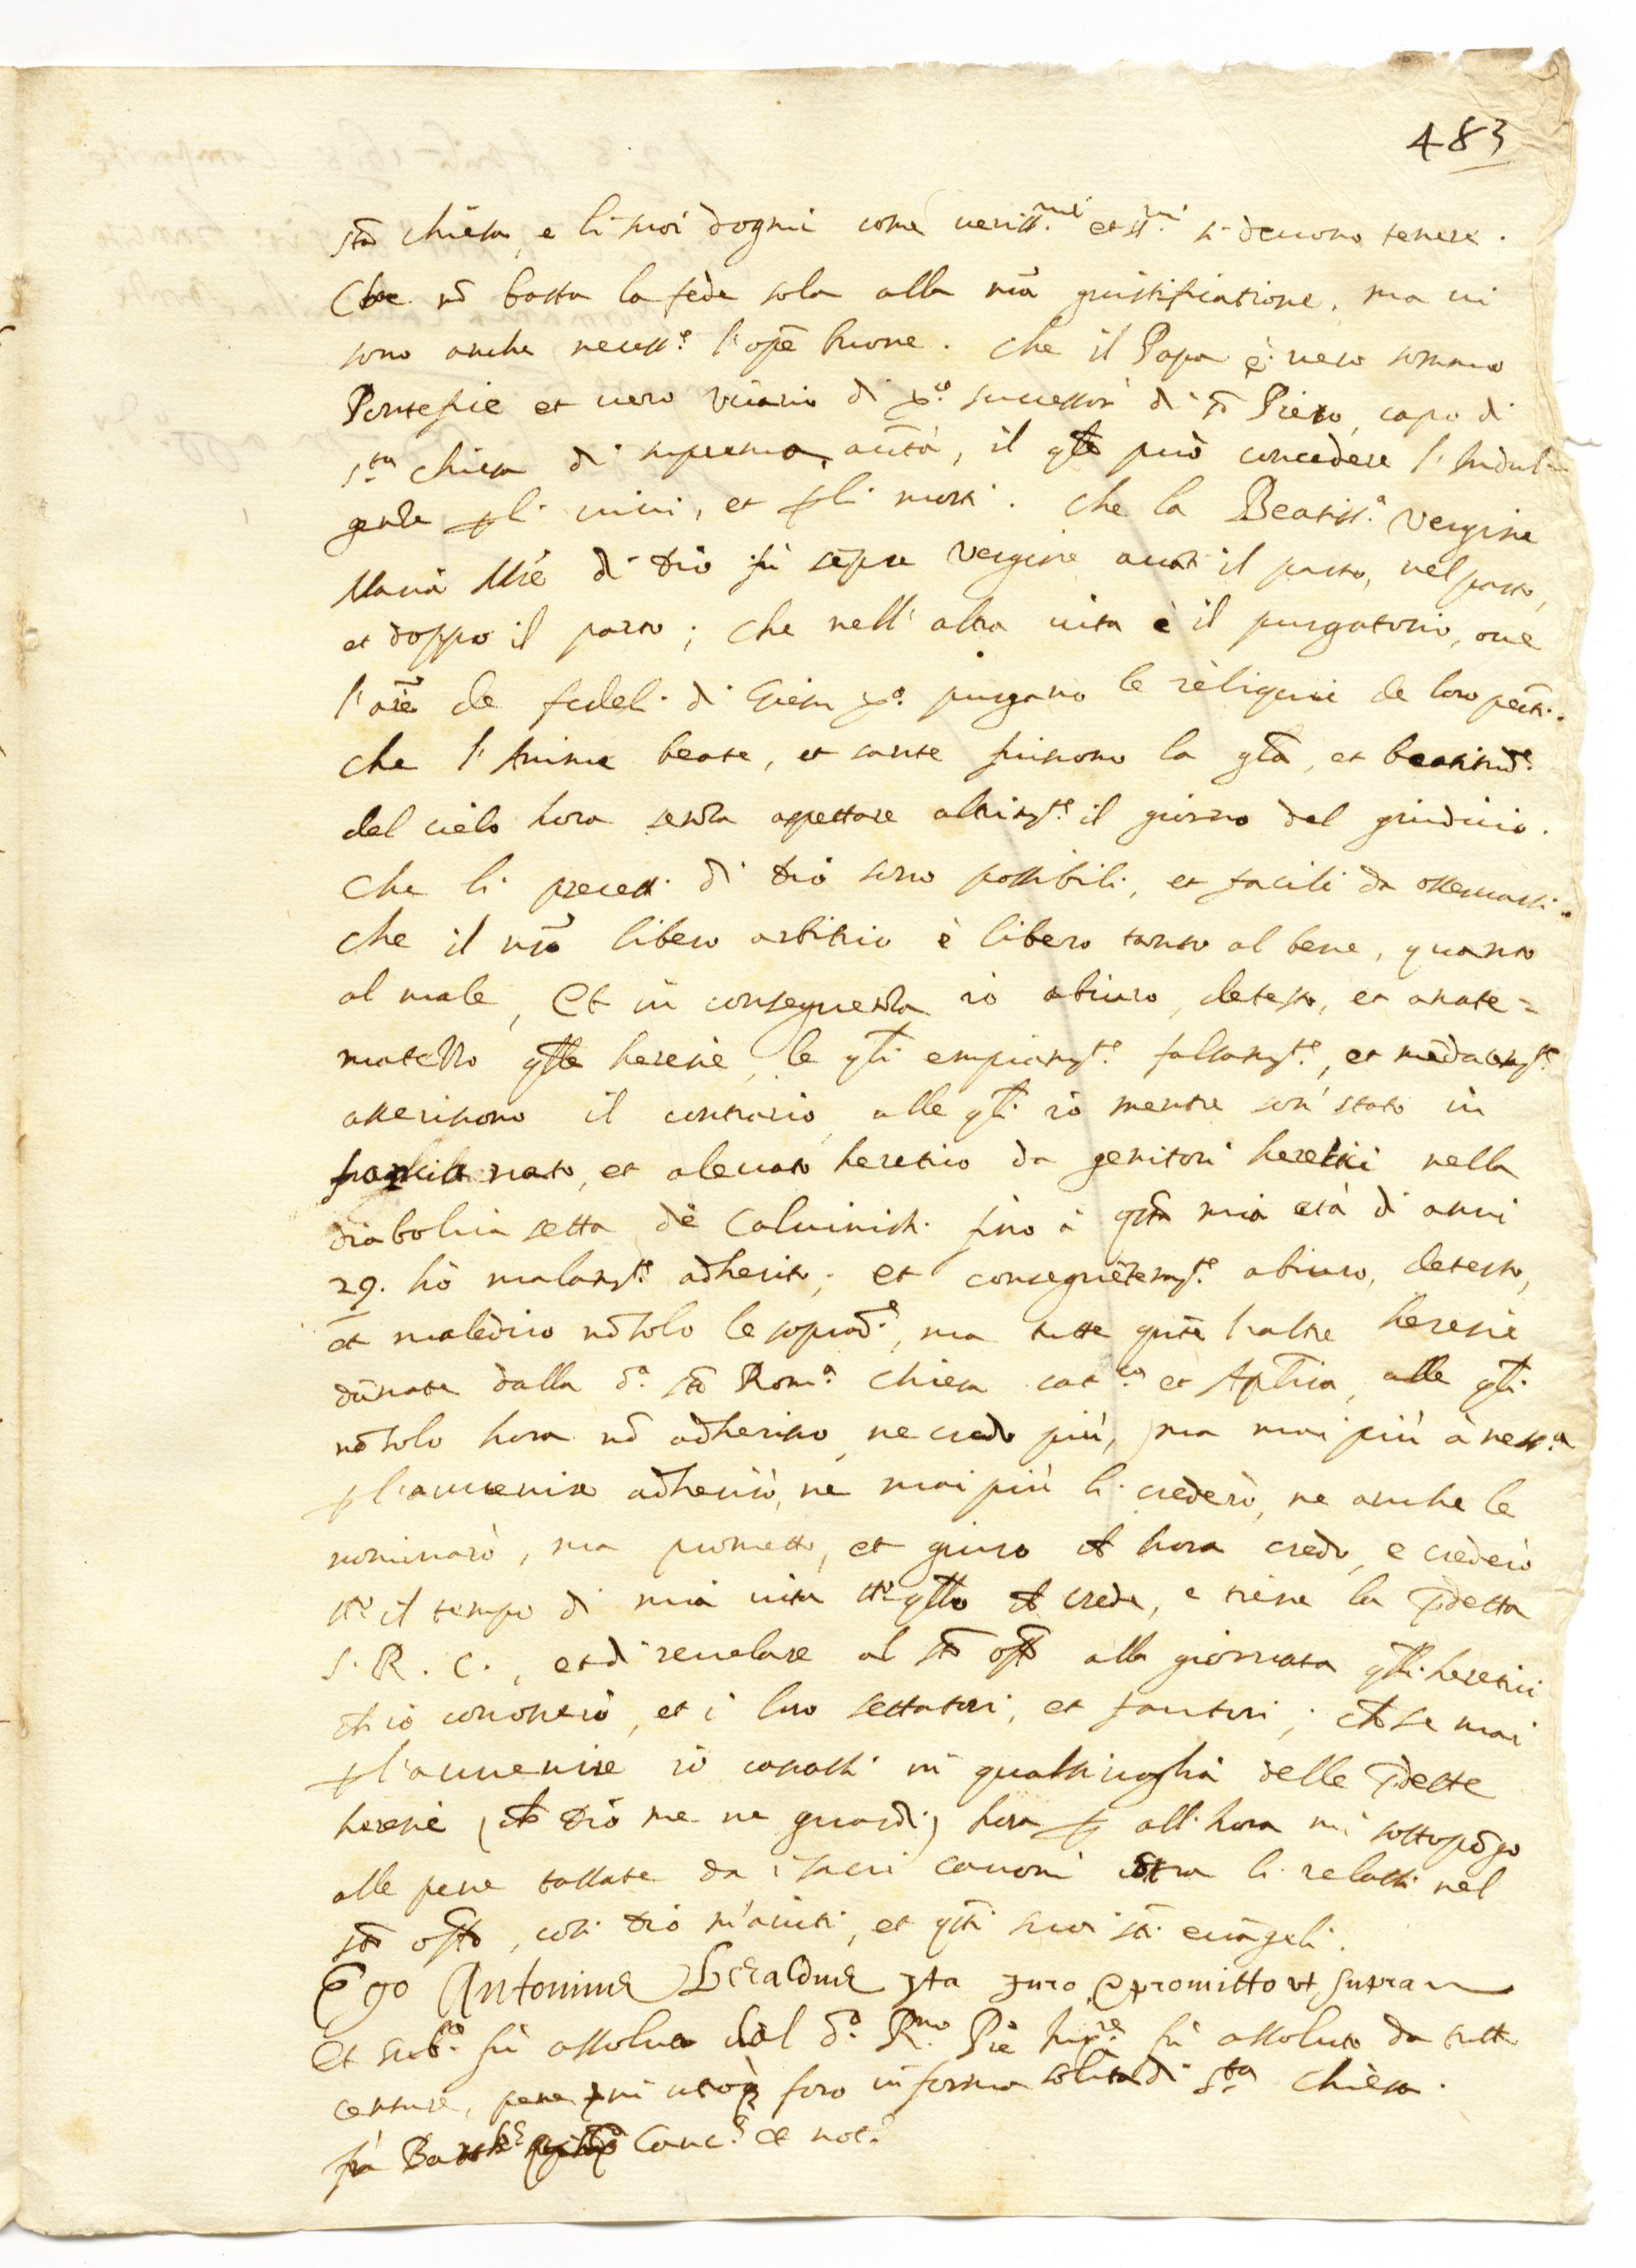 483
sta chiesa, e li suoi dogmi come veriss.mi et st.mi si devono tenere.
Che nō basta la fede sola alla nrā giustificatione, ma vi
sono anche necess.e l'opē buone. che il Papa è vero sommo
Pontefice et vero vicario di Xo. successor di sto Pietro, capo di
s.ta chiesa di suprema auttā, il qle può concedere l'Indul-
genze p li vivi, et p li morti. Che la Beatiss.a Vergine
Maria Mrē di Dio fù sēpre Vergine avāti il parto, nel parto,
et doppo il parto; Che nell'altra vita è il purgatorio, ove
l'aīe de fedeli di Giesu Xo. purgano le reliquie de loro pctī.
che l'Anime beate, et sante fruisono la glā, et beatitud.e
del cielo hora senza aspettare altrimte il giorno del giudicio.
Che li precetti di Dio sono possibili, et facili da osservarsi.
Che il nrō libero arbitrio è libero tanto al bene, quanto
al male, Et in conseguenza io abiuro, detesto, et anate=
matizzo qlle heresie, le qli empiamte. falsamte., et mēdacemte.
asseriscono il contrario, alle qli io mentre son' stato in
nato, et alevato heretico da genitori heretici nella
diabolica setta de Calvinisti fino à qsta mia età di anni
29. hò malamte. adherito; et conseguētemte. abiuro, detesto,
et maledico nō solo le soprad.e, ma tutte quāte l'altre heresie
dānate dalla d.a sta Rom.a chiesa cat.ca et Aplica, alle qli
nō solo hora nō adherisco, ne credo più, ma mai più à ness.a
p l'avvenire adherirò, ne mai più li crederò, ne anche le
nominarò, ma prometto, et giuro ch hora credo, e crederò
tto il tempo di mia vita tto qllo ch crede, e tiene la pdetta
S. R. C., et di revelare al sto offo alla giornata qlli heretici
ch'io conoscerò, et i loro settatori, et fautori; ch se mai
p l'avvenire io cascassi in qualsivoglia delle pdette
heresie (ch Dio me ne guardi) hora p all'hora mi sottopōgo
alle pene tassate da i sacri canoni cōtra li relassi nel
sto offo, così Dio m'aiuti, et qsti suoi sti evāgeli.
Ego Antonius Geraldus ita juro et promitto ut supra
Et sub.o fù assoluo dal d.o R.mo Prē Inq.re fù assoluto da tutte
censure, pene in utroq foro in forma solita di s.ta chiesa.
frà Canc.e et not.o